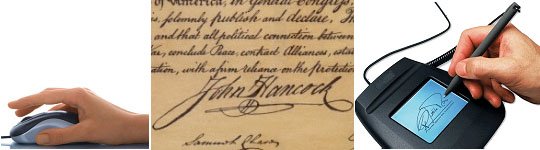 of America, in General Congress,
s, solemnly publish and declare, That
and that all political connection between
war, conclude Peace, contract Alliances, esta
ation, with a firm reliance on the protection
John Hancock
Samuel Chase